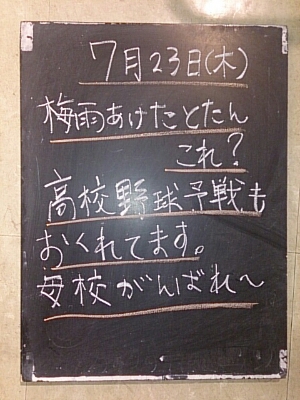 7月23日(木)
梅雨あけたとたん
これ?
高校野球予戦も
おくれてます。
母校がんばれ〜